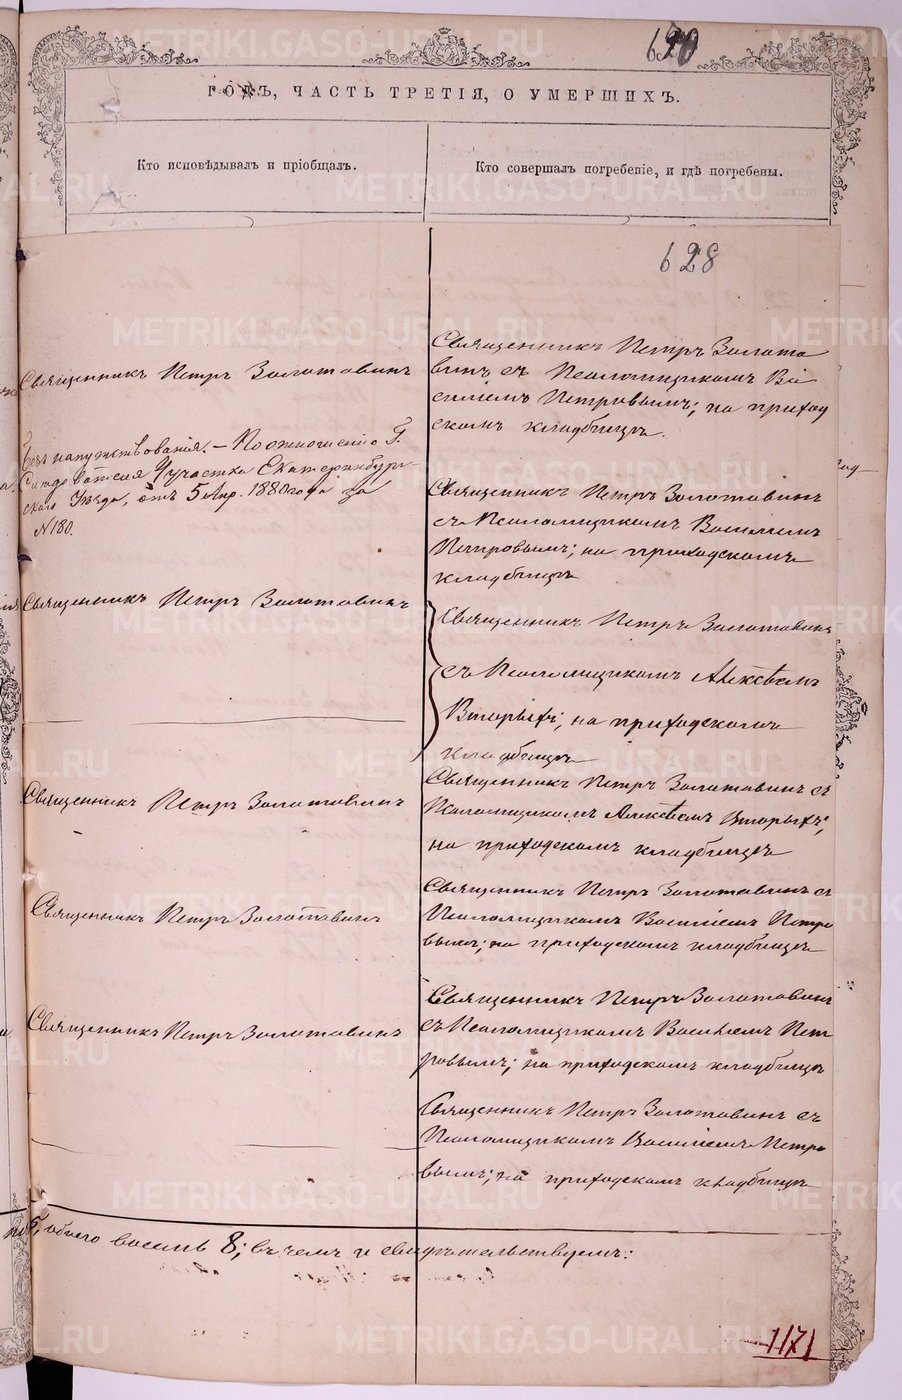 620
ГОДЪ, ЧАСТЬ ТРЕТІЯ, О УМЕРШИХЪ.
Кто исповѣдывалъ и пріобщалъ.
Кто совершалъ погребеніе, и гдѣ погребены.
628
Священникъ Петръ Золотовинъ
Священникъ Петръ Золото
винъ съ Псаломщикомъ Ва
силіемъ Петровымъ; на приход
скомъ кладбищѣ.
Безъ напутствованія. — По отношенію Г.
Слѣдователя 4 участка Екатеринбург-
скаго Уѣзда, отъ 5 Апр. 1880 года за
№ 180.
Священникъ Петръ Золотовинъ
съ Псаломщикомъ Василіемъ
Петровымъ; на приходскомъ
кладбищѣ
Священникъ Петръ Золотовинъ
Священникъ Петръ Золотовинъ
съ Псаломщикомъ Алексѣемъ
Вторыхъ; на приходскомъ
кладбищѣ
Священникъ Петръ Золотовинъ
Священникъ Петръ Золотовинъ съ
Псаломщикомъ Алексѣемъ Вторыхъ;
на приходскомъ кладбищѣ
Священникъ Петръ Золотовинъ
Священникъ Петръ Золотовинъ съ
Псаломщикомъ Василіемъ Петро
вымъ; на приходскомъ кладбищѣ
Священникъ Петръ Золотовинъ
Священникъ Петръ Золотовинъ
съ Псаломщикомъ Василіемъ Пет
ровымъ; на приходскомъ кладбищѣ
Священникъ Петръ Золотовинъ съ
Псаломщикомъ Василіемъ Петро
вымъ; на приходскомъ кладбищѣ
5, обоего восемь 8; въ чемъ и свидѣтельствуемъ:
1171
METRIKI.GASO-URAL.RU